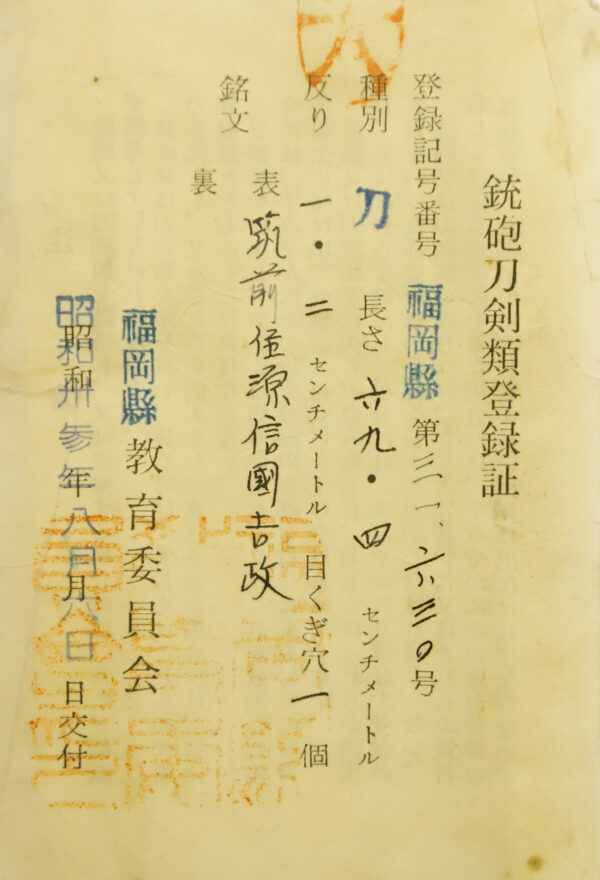 銃砲刀剣類登録証
登録記号番号 福岡縣 第三一、六三〇号
種別 刀 長さ 六九・四 センチメートル
反り 一・二 センチメートル 目くぎ穴 一 個
銘文 表 筑前住源信國吉政
裏
福岡縣 教育委員会
昭和 昭和卅参年 年八月 月六日 日交付